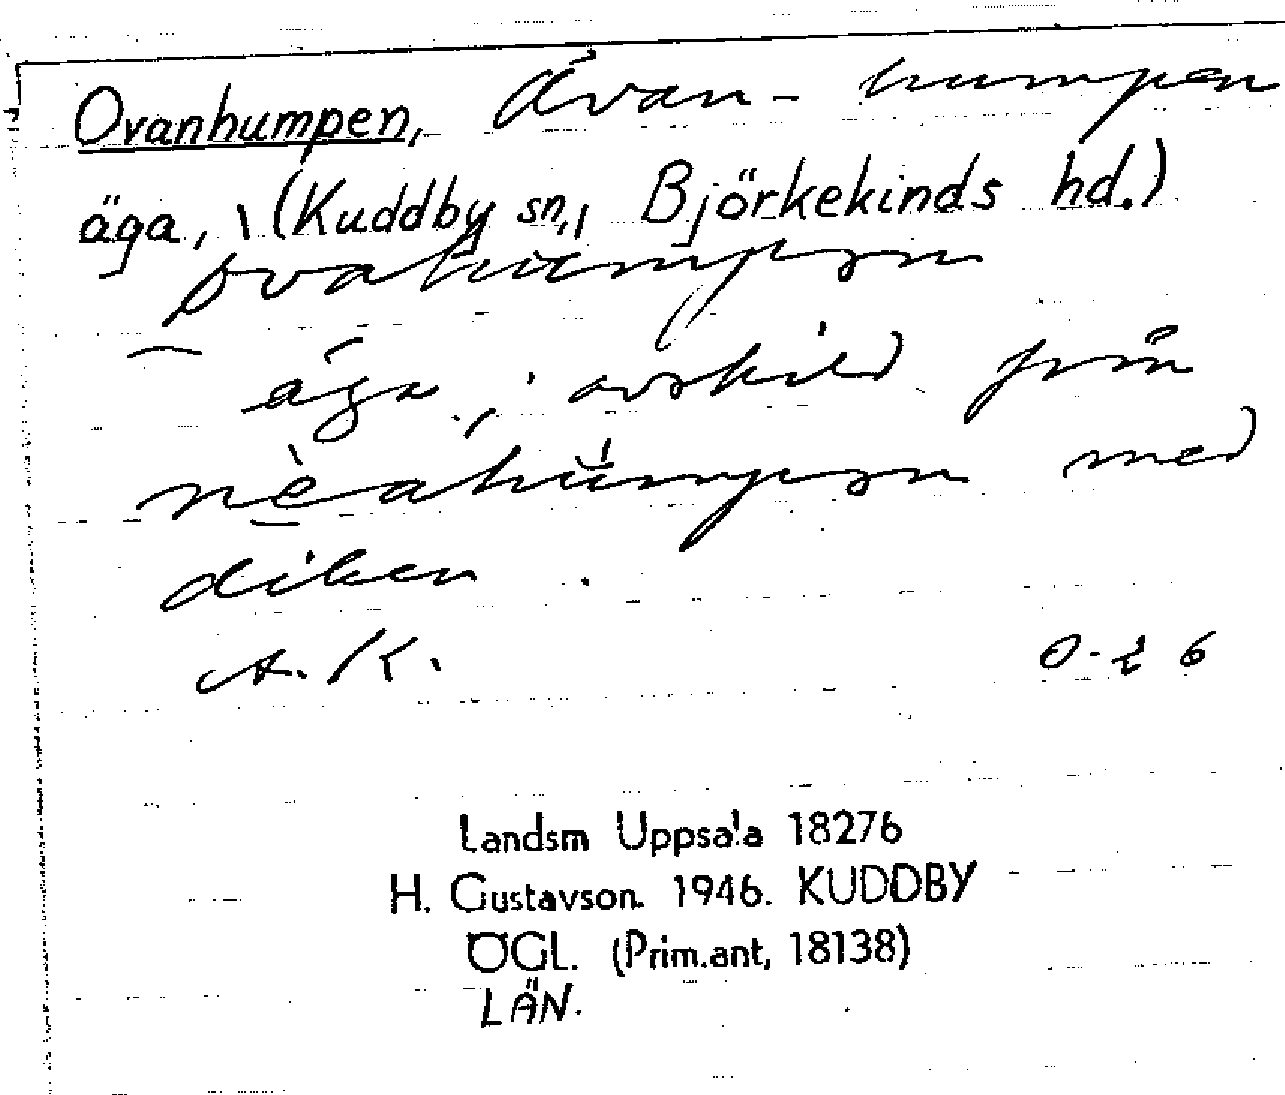 Ovanhumpen, Åvan-humpen
äga, (Kuddby sn, Björkekinds hd.)
äga, avskild från
med
diken.
A. K.
Landsm Uppsala 18276
H. Gustavson. 1946. KUDDBY
ÖGL. (Prim.ant, 18138)
LÄN.